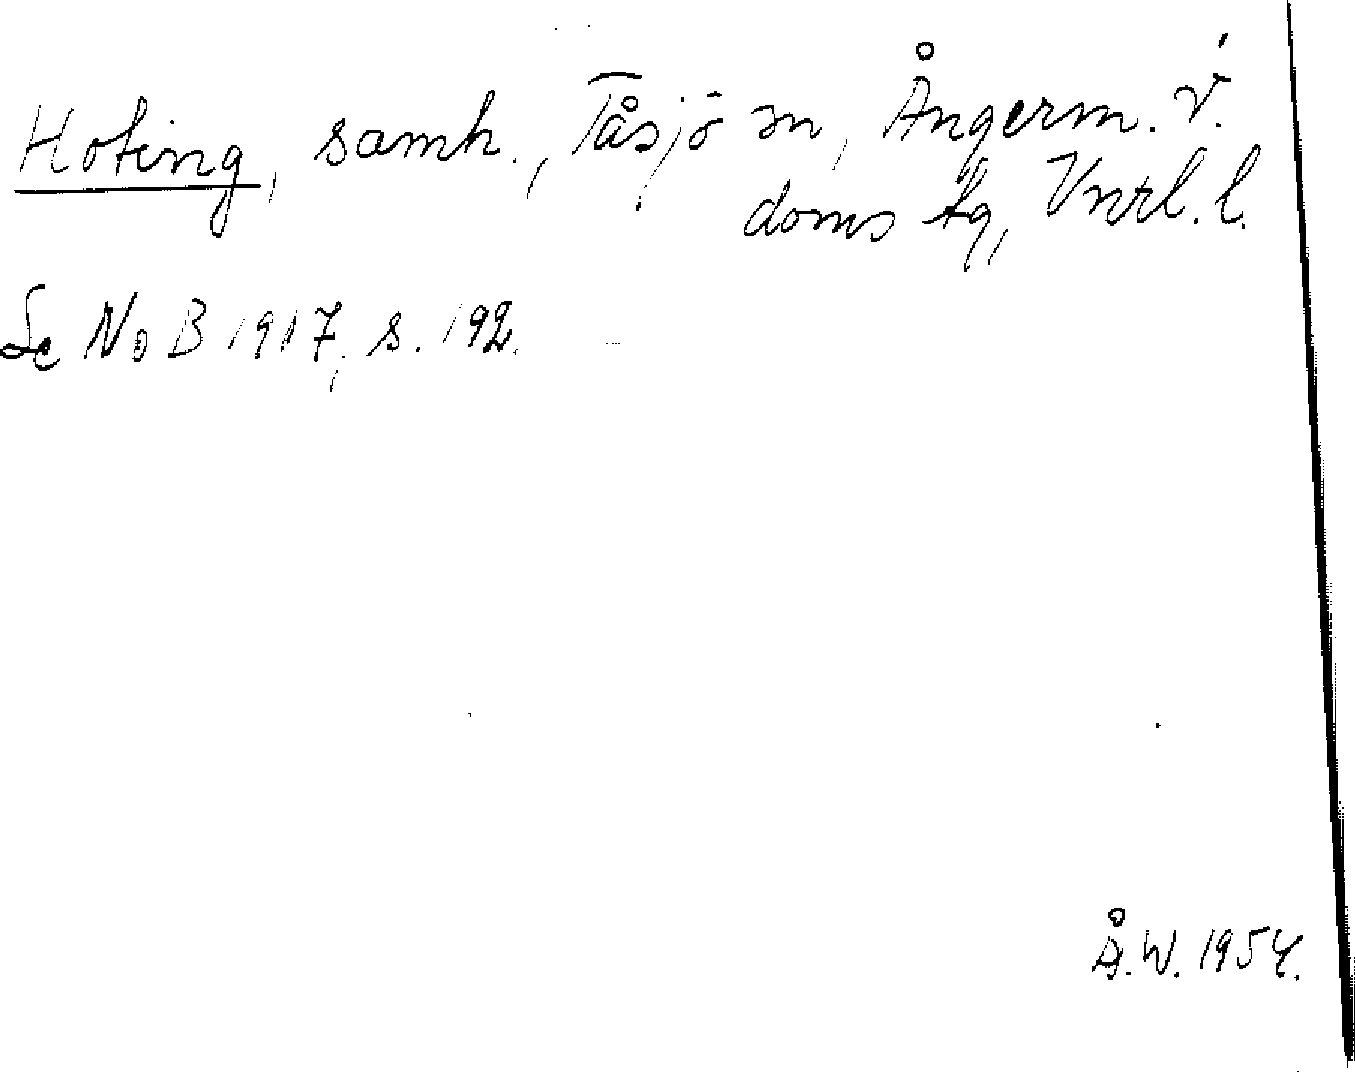 Hoting, samh., Tåsjö sn, Ångerm. V.
doms lg, Vnrl. l.
Se NoB 1917, s. 192.
Å.W. 1954.